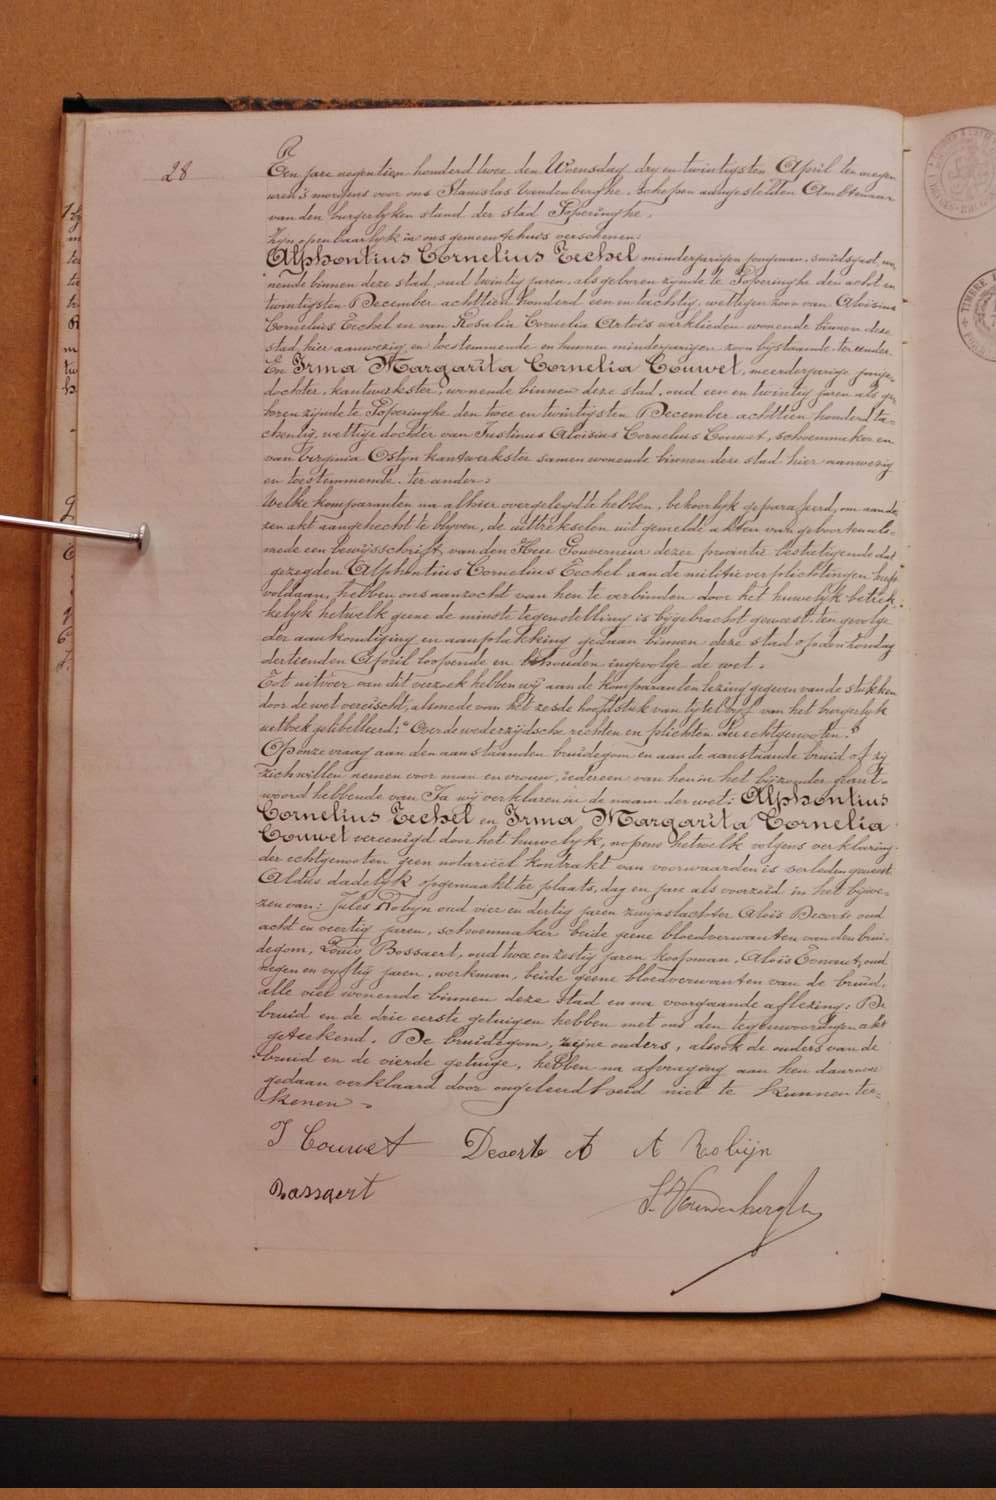 28
Een jare negentien honderd twee den Woensdag dry en twintigsten April ten negen
uren 's morgens voor ons Stanislas Vandenberghe, schepen aangestelden Ambtenaar
van den burgerlyken stand der stad Poperinghe,
Zyn openbaarlyk in ons gemeentehuis verschenen:
Alphontius Cornelius Teckel minderjarigen jongman, smidsgast, wo-
nende binnen deze stad, oud twintig jaren, als geboren zynde te Poperinghe den acht en
twintigsten December achttien honderd een en tachtig, wettigen zoon van Aloïsius
Cornelius Teckel en van Rosalia Cornelia Artois werklieden wonende binnen deze
stad, hier aanwezig en toestemmende en hunnen minderjarigen zoon bystaande. ter eender.
En Irma Margarita Cornelia Couwet, meerderjarige jonge-
dochter, kantwerkster, wonende binnen deze stad, oud een en twintig jaren als ge-
boren zynde te Poperinghe den twee en twintigsten December achttien honderd ta-
chentig, wettige dochter van Justinus Aloïsius Cornelius Couwet, schoenmaker en
van Virginia Ostyn kantwerkster samen wonende binnen deze stad hier aanwezig
en toestemmende. ter ander:
Welke komparanten na alhier overgelegd te hebben, behoorlyk geparafeerd, om aan de-
zen akt aangehecht te blyven, de uittrekselen uit gemelde akten van geboorten als-
mede een bewysschrift van den Heer Gouverneur dezer provintie bestatigende dat
gezegden Alphontius Cornelius Teckel aan de militie verplichtingen heeft
voldaan, hebben ons aanzocht van hen te verbinden door het huwelyk betrek-
kelyk hetwelk geene de minste tegenstelling is bygebracht geweest ten gevolge
der aankondiging en aanplakking gedaan binnen deze stad op den zondag
dertienden April loopende en behouden ingevolge de wet.
Tot uitvoer van dit verzoek hebben wy aan de komparanten lezing gegeven van de stukken
door de wet vereischt, alsmede van het zesde hoofdstuk van tytel vyf van het burgerlyk
wetboek getibelleerd: "Over de wederzydsche rechten en plichten der echtgenooten."
Op onze vraag aan den aanstaanden bruidegom en aan de aanstaande bruid of zy
zich willen nemen voor man en vrouw, iedereen van hen in het byzonder geant-
woord hebbende van Ja wy verklaren in de naam der wet: Alphontius
Cornelius Teckel en Irma Margarita Cornelia
Couwet vereenigd door het huwelyk, nopens hetwelk volgens verklaring
der echtgenooten geen notarieël kontrakt van voorwaarden is verleden geweest.
Aldus dadelyk opgemaakt ter plaats, dag en jare als voorzeid in het bywe-
zen van: Jules Robyn oud vier en dertig jaren zwynslachter Aloïs Decorte oud
acht en veertig jaren, schoenmaker beide geene bloedverwanten van den brui-
degom, Louis Bossaert, oud twee en zestig jaren koopman, Aloïs oud
negen en vyftig jaren, werkman, beide geene bloedverwanten van de bruid,
alle vier wonende binnen deze stad en na voorgaande aflezing: De
bruid en de drie eerste getuigen hebben met ons den tegenwoordigen akt
geteekend. De bruidegom, zyne ouders, alsook de ouders van de
bruid en de vierde getuige, hebben na afvraging aan hen daarover
gedaan verklaard door ongeleerdheid niet te kunnen tee-
kenen.
I Couwet Decorte A A Robijn
Bossaert S. Vandenberghe